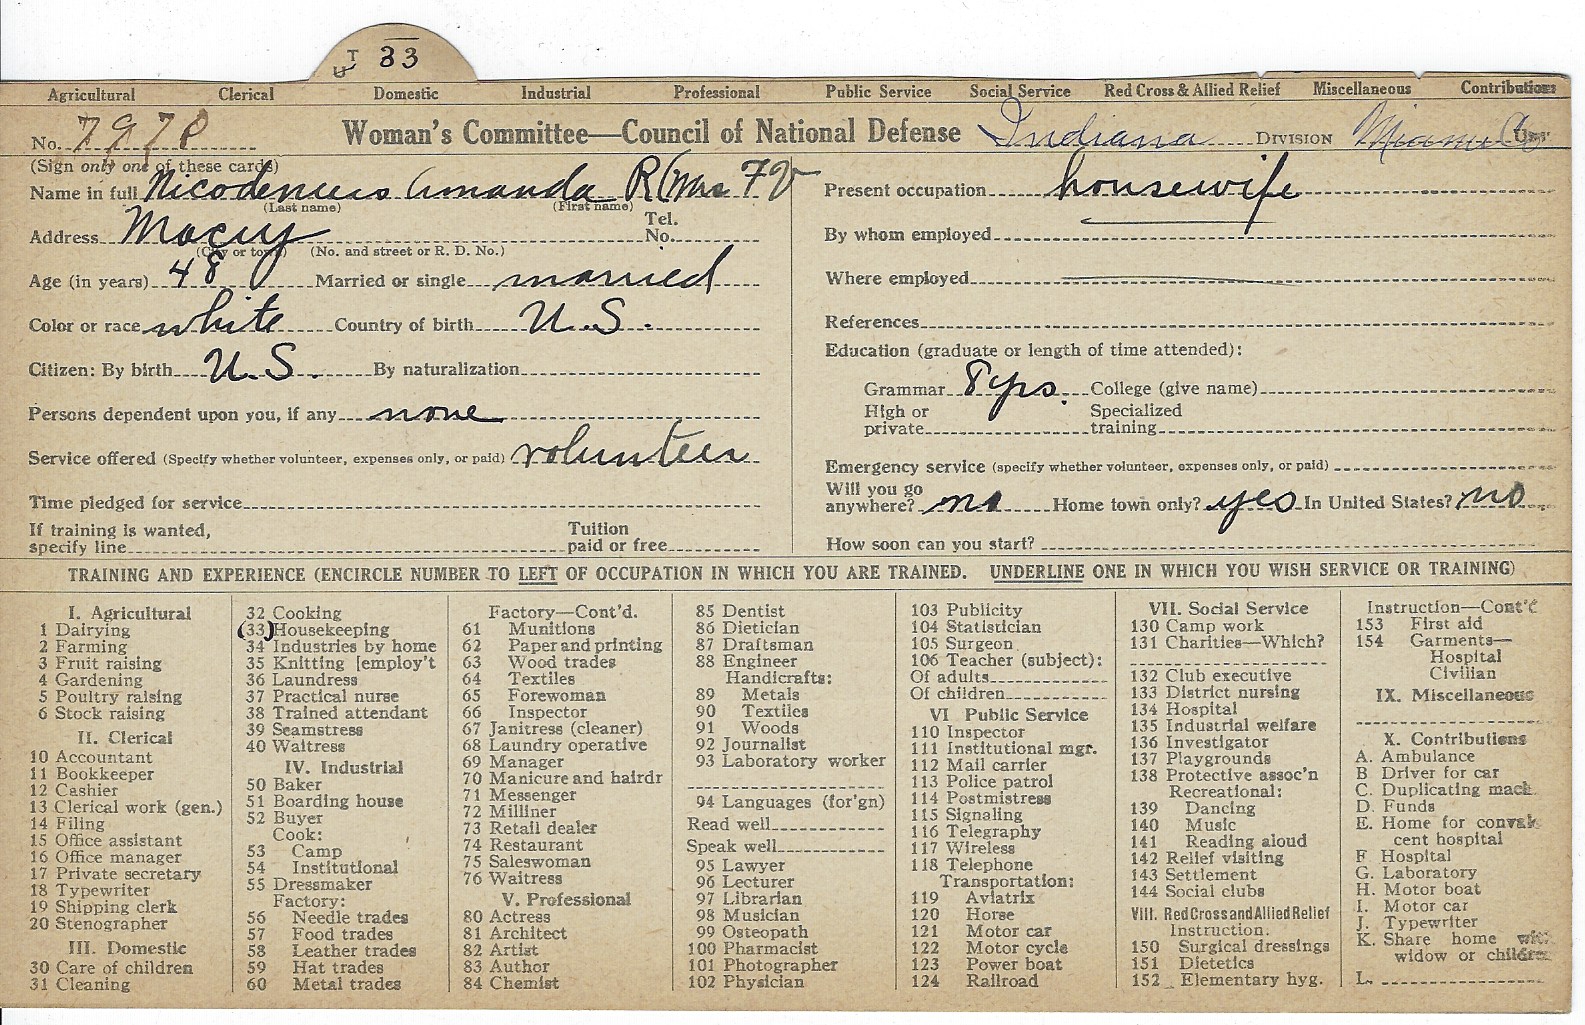 UT 33
Agricultural Clerical Domestic Industrial Professional Public Service Social Service Red Cross & Allied Relief Miscellaneous Contributions
No. 7978 Woman's Committee—Council of National Defense Indiana DIVISION Miami Co
(Sign only one of these cards)
Name in full Nicodemus Amanda R (Mrs F V
(Last name) (First name)
Address Macy Tel. No.
(City or town) (No. and street or R. D. No.)
Age (in years) 48 Married or single married
Color or race white Country of birth U.S.
Citizen: By birth U.S. By naturalization
Persons dependent upon you, if any none
Service offered (Specify whether volunteer, expenses only, or paid) volunteer
Time pledged for service
If training is wanted, specify line Tuition paid or free
Present occupation housewife
By whom employed
Where employed
References
Education (graduate or length of time attended):
Grammar 8 yrs. College (give name)
High or private Specialized training
Emergency service (specify whether volunteer, expenses only, or paid)
Will you go anywhere? no Home town only? yes In United States? no
How soon can you start?
TRAINING AND EXPERIENCE (ENCIRCLE NUMBER TO LEFT OF OCCUPATION IN WHICH YOU ARE TRAINED. UNDERLINE ONE IN WHICH YOU WISH SERVICE OR TRAINING)
I. Agricultural
1 Dairying
2 Farming
3 Fruit raising
4 Gardening
5 Poultry raising
6 Stock raising
II. Clerical
10 Accountant
11 Bookkeeper
12 Cashier
13 Clerical work (gen.)
14 Filing
15 Office assistant
16 Office manager
17 Private secretary
18 Typewriter
19 Shipping clerk
20 Stenographer
III. Domestic
30 Care of children
31 Cleaning
32 Cooking
(33) Housekeeping
34 Industries by home
35 Knitting [employ't
36 Laundress
37 Practical nurse
38 Trained attendant
39 Seamstress
40 Waitress
IV. Industrial
50 Baker
51 Boarding house
52 Buyer
Cook:
53 Camp
54 Institutional
55 Dressmaker
Factory:
56 Needle trades
57 Food trades
58 Leather trades
59 Hat trades
60 Metal trades
Factory—Cont'd.
61 Munitions
62 Paper and printing
63 Wood trades
64 Textiles
65 Forewoman
66 Inspector
67 Janitress (cleaner)
68 Laundry operative
69 Manager
70 Manicure and hairdr
71 Messenger
72 Milliner
73 Retail dealer
74 Restaurant
75 Saleswoman
76 Waitress
V. Professional
80 Actress
81 Architect
82 Artist
83 Author
84 Chemist
85 Dentist
86 Dietician
87 Draftsman
88 Engineer
Handicrafts:
89 Metals
90 Textiles
91 Woods
92 Journalist
93 Laboratory worker
94 Languages (for'gn)
Read well
Speak well
95 Lawyer
96 Lecturer
97 Librarian
98 Musician
99 Osteopath
100 Pharmacist
101 Photographer
102 Physician
103 Publicity
104 Statistician
105 Surgeon
106 Teacher (subject):
Of adults
Of children
VI Public Service
110 Inspector
111 Institutional mgr.
112 Mail carrier
113 Police patrol
114 Postmistress
115 Signaling
116 Telegraphy
117 Wireless
118 Telephone
Transportation:
119 Aviatrix
120 Horse
121 Motor car
122 Motor cycle
123 Power boat
124 Railroad
VII. Social Service
130 Camp work
131 Charities—Which?
132 Club executive
133 District nursing
134 Hospital
135 Industrial welfare
136 Investigator
137 Playgrounds
138 Protective assoc'n
Recreational:
139 Dancing
140 Music
141 Reading aloud
142 Relief visiting
143 Settlement
144 Social clubs
VIII. Red Cross and Allied Relief
Instruction.
150 Surgical dressings
151 Dietetics
152 Elementary hyg.
Instruction—Cont'd
153 First aid
154 Garments—
Hospital
Civilian
IX. Miscellaneous
X. Contributions
A. Ambulance
B Driver for car
C. Duplicating mach.
D. Funds
E. Home for convales
cent hospital
F Hospital
G. Laboratory
H. Motor boat
I. Motor car
J. Typewriter
K. Share home with
widow or children
L.